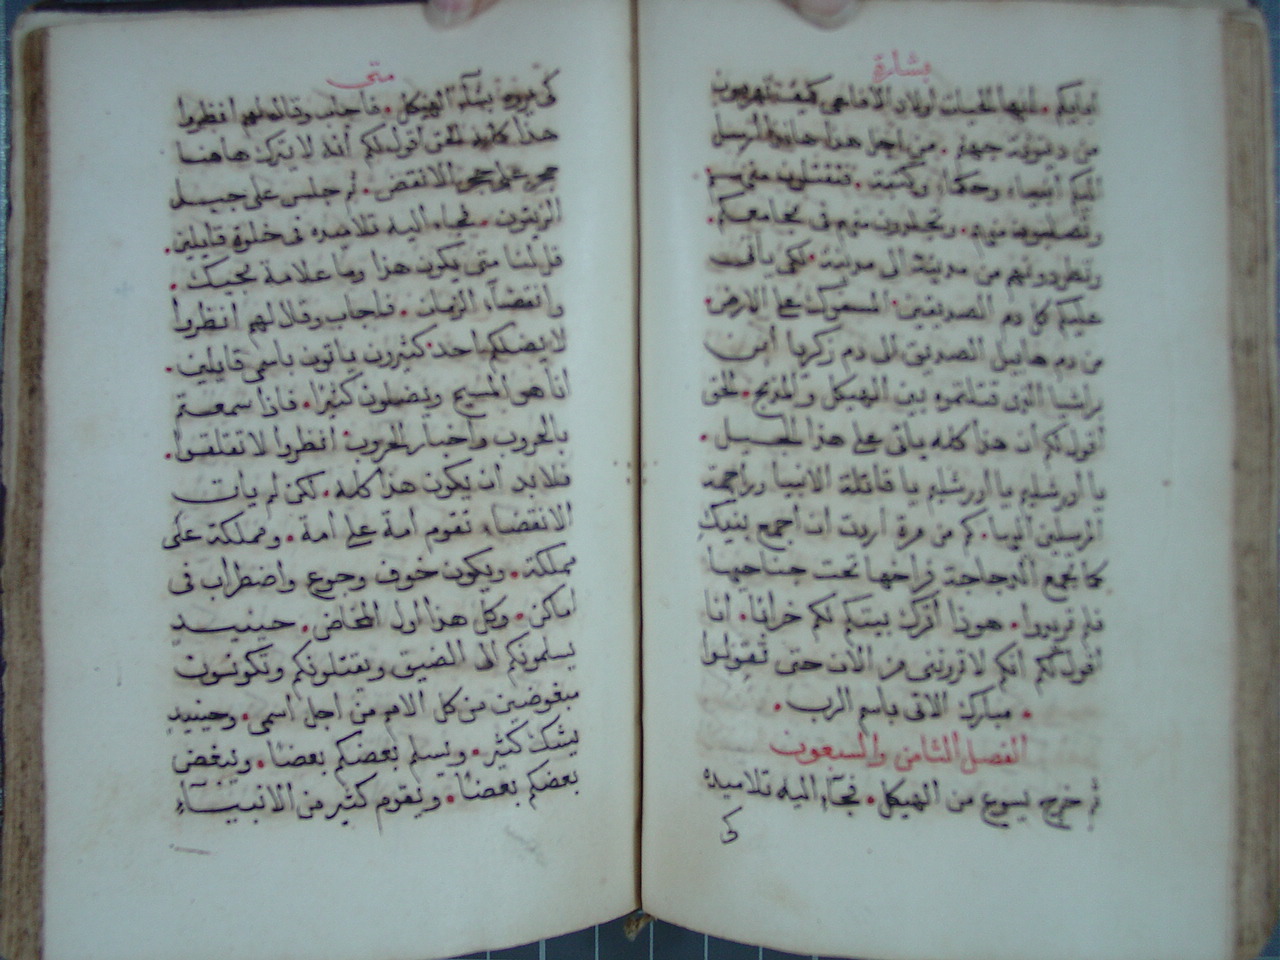 بشارة
ابايكم. ايها الحيات اولاد الافاعي كيف تهربون
من دينونة جهنم. من اجل هذا هانذا ارسل
اليكم انبياء وحكماء وكتبة. فتقتلون منهم
وتصلبون منهم. وتجلدون منهم في مجامعكم.
وتطردونهم من مدينة الى مدينة. لكي ياتي
عليكم كل دم الصديقين. المسفوك على الارض
من دم هابيل الصديق الى دم زكريا ابن
براشيا الذي قتلتموه بين الهيكل والمذبح. الحق
اقول لكم ان هذا كله ياتي على هذا الجيل.
يا اورشليم يا اورشليم يا قاتلة الانبيا وراجمة
المرسلين اليها. كم من مرة اردت ان اجمع بنيك
كما تجمع الدجاجة فراخها تحت جناحيها
فلم تريدوا. هوذا اترك بيتكم لكم خرابا. انا
اقول لكم انكم لا ترونني من الان حتى تقولوا
. مبارك الاتى باسم الرب.
الفصل الثامن والسبعون
ثم خرج يسوع من الهيكل. فجاء اليه تلاميذه
متى
كي يروه بناء الهيكل. فاجاب وقال لهم انظروا
هذا كله الحق اقول لكم انه لا يترك هاهنا
حجر على حجر الا نقض. ثم جلس على جبل
الزيتون. فجاء اليه تلاميذه فى خلوة قايلين.
قل لنا متى يكون هذا وما علامة مجيك.
وانقضاء الزمان. فاجاب وقال لهم انظروا
لا يضلكم احد. كثيرون ياتون باسمى قايلين.
انا هو المسيح ويضلون كثيرا. فاذا سمعتم
بالحروب واخبار الحروب. انظروا لا تقلقوا.
فلا بد ان يكون هذا كله. لكن لم يات
الانقضاء. تقوم امة على امة. ومملكة على
مملكة. ويكون خوف وجوع واضطراب فى
اماكن. وكل هذا اول المخاض. حينيذ
يسلمونكم الى الضيق ويقتلونكم وتكونون
مبغوضين من كل الامم من اجل اسمى. وحينيذ
يشك كثير. ويسلم بعضكم بعضا. ويبغض
بعضكم بعضا. ويقوم كثير من الانبياء